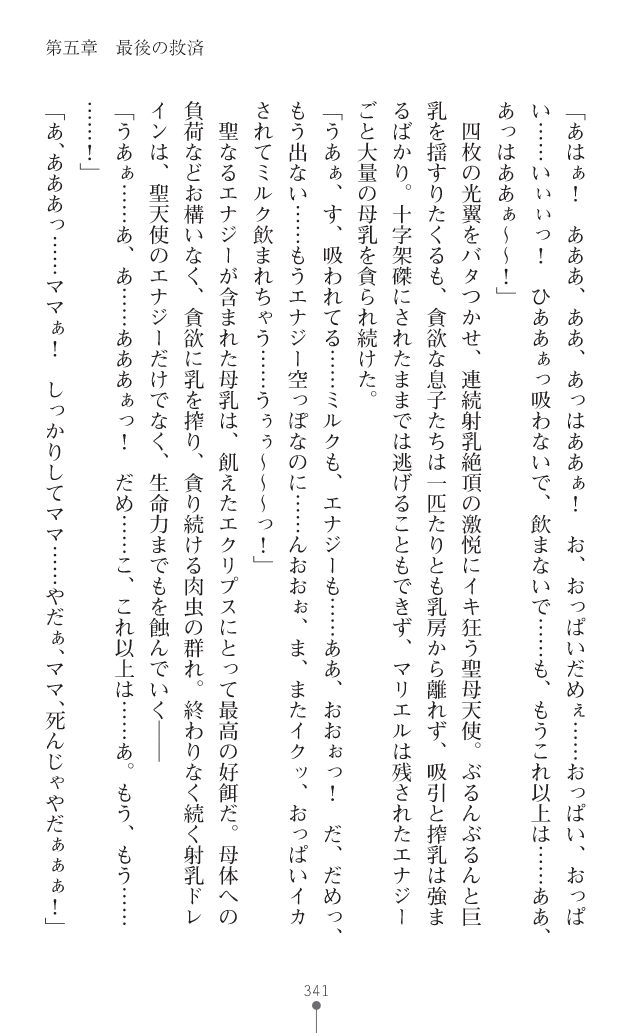 第五章　最後の救済
「あはぁ！　あああ、ああ、あっはああぁ！　お、おっぱいだめぇ……おっぱい、おっぱ
い……いぃぃっ！　ひああぁっ吸わないで、飲まないで……も、もうこれ以上は……ああ、
あっはああぁ～～！」
　四枚の光翼をバタつかせ、連続射乳絶頂の激悦にイキ狂う聖母天使。ぶるんぶるんと巨
乳を揺すりたくるも、貪欲な息子たちは一匹たりとも乳房から離れず、吸引と搾乳は強ま
るばかり。十字架磔にされたままでは逃げることもできず、マリエルは残されたエナジー
ごと大量の母乳を貪られ続けた。
「うあぁ、す、吸われてる……ミルクも、エナジーも……ああ、おおぉっ！　だ、だめっ、
もう出ない……もうエナジー空っぽなのに……んおおぉ、ま、またイクッ、おっぱいイカ
されてミルク飲まれちゃう……うぅぅ～～～っ！」
　聖なるエナジーが含まれた母乳は、飢えたエクリプスにとって最高の好餌だ。母体への
負荷などお構いなく、貪欲に乳を搾り、貪り続ける肉虫の群れ。終わりなく続く射乳ドレ
インは、聖天使のエナジーだけでなく、生命力までもを蝕んでいく――
「うあぁ……あ、あ……あああぁっ！　だめ……こ、これ以上は……あ。もう、もう……
……！」
「あ、あああっ……ママぁ！　しっかりしてママ……やだぁ、ママ、死んじゃやだぁぁぁ！」
341